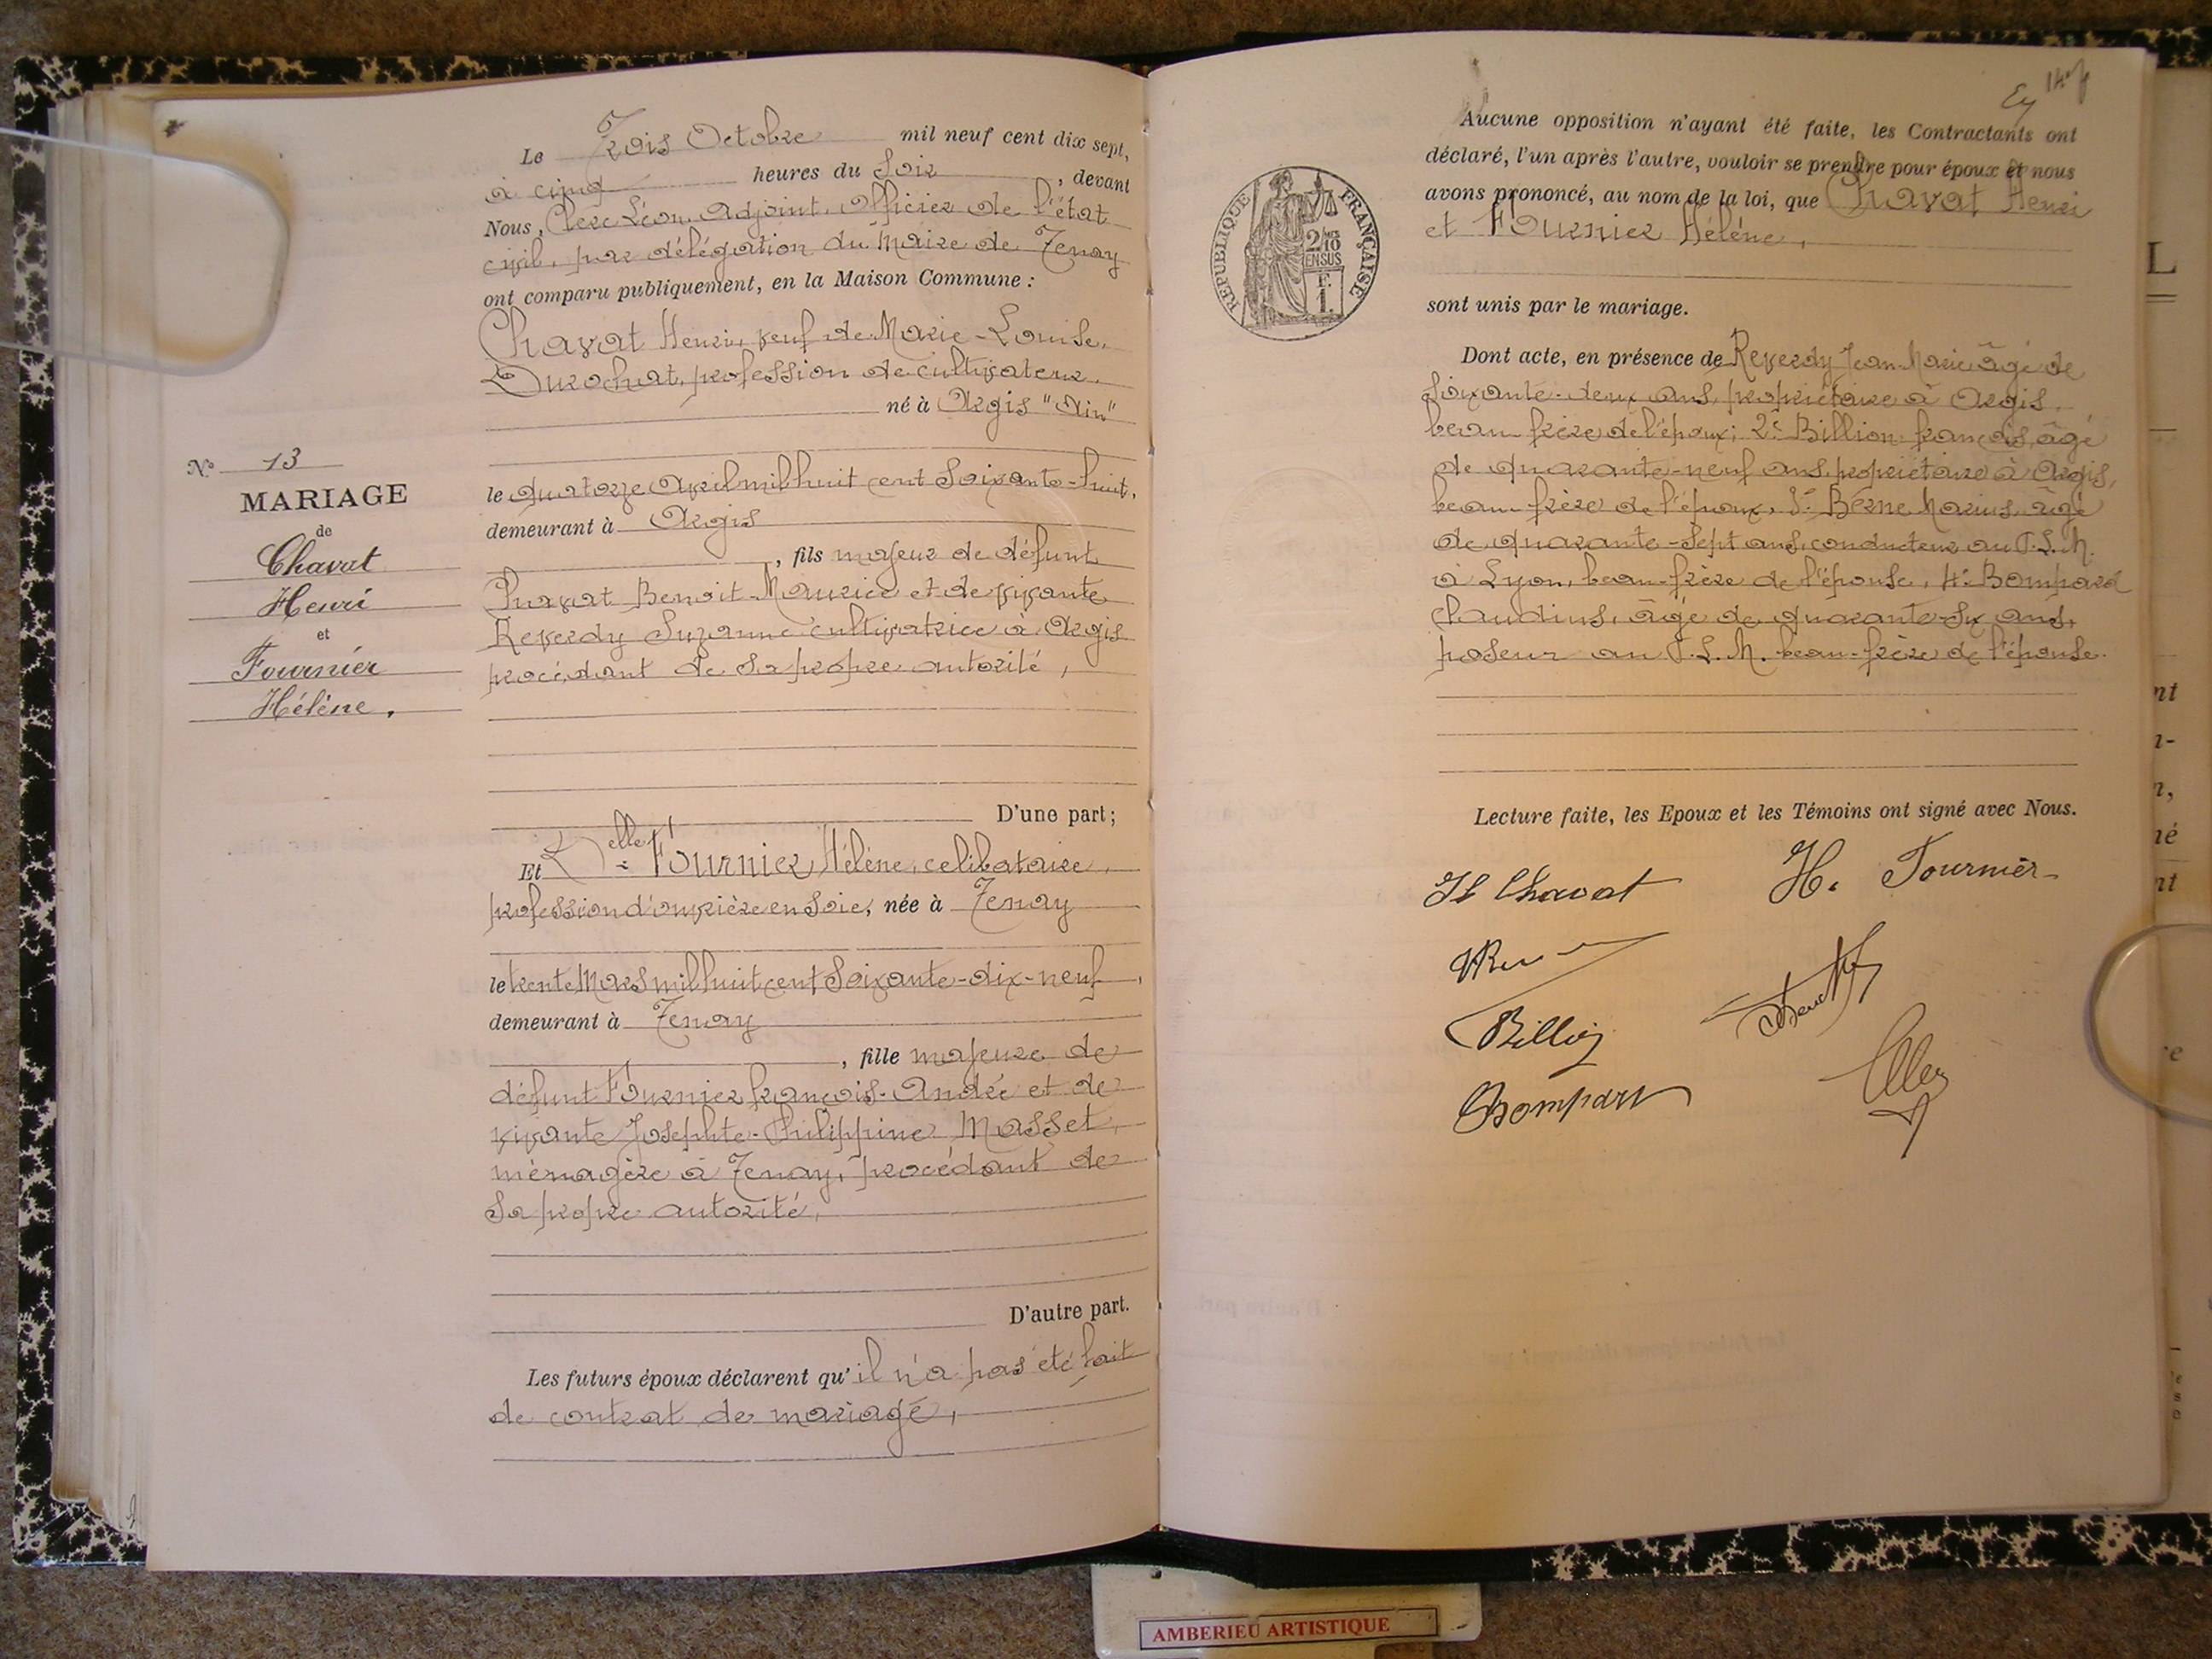 Le Trois Octobre mil neuf cent dix sept,
à cinq heures du Soir, devant
Nous, Clerc Léon, Adjoint, Officier de l'état
civil, par délégation du Maire de Tenay
ont comparu publiquement, en la Maison Commune :
Chavat Henri, veuf de Marie-Louise
Durochat, profession de cultivateur,
né à Argis "Ain"
le quatorze Avril mil huit cent Soixante-huit,
demeurant à Argis
, fils majeur de défunt
Chavat Benoit-Maurice et de vivante
Reverdy Suzanne cultivatrice à Argis
procédant de sa propre autorité,
D'une part;
Et Delle Fournier Hélène, celibataire,
profession d'ouvrière en Soie, née à Tenay
le trente Mars mil huit cent Soixante-dix-neuf,
demeurant à Tenay
, fille majeure de
défunt Fournier françois-André et de
vivante Josephte-Philippine Masset,
ménagère à Tenay, procédant de
Sa propre autorité,
D'autre part.
Les futurs époux déclarent qu'il n'a pas été fait
de contrat de mariage,
N° 13
MARIAGE
de
Chavat
Henri
et
Fournier
Hélène,
Aucune opposition n'ayant été faite, les Contractants ont
déclaré, l'un après l'autre, vouloir se prendre pour époux et nous
avons prononcé, au nom de la loi, que Chavat Henri
et Fournier Hélène,
sont unis par le mariage.
Dont acte, en présence de Reverdy Jean-Marie âgé de
Soixante-deux ans, propriétaire à Argis,
beau-frère de l'époux; 2° Billion françois, âgé
de quarante-neuf ans, propriétaire à Argis,
beau-frère de l'époux, 3° Berne Marius, âgé
de quarante-Sept ans, conducteur au P.L.M.
à Lyon, beau-frère de l'épouse, 4° Bompard
Claudius, âgé de quarante-six ans,
poseur au P.L.M. beau-frère de l'épouse.
Lecture faite, les Epoux et les Témoins ont signé avec Nous.
H Chavat
H. Fournier
Billion
Bompard
RÉPUBLIQUE FRANÇAISE
2/10
EN SUS
F.
1.
AMBERIEU ARTISTIQUE